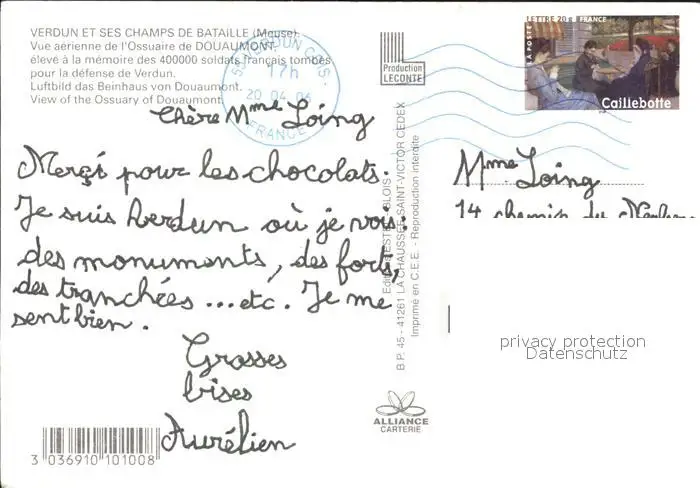 VERDUN ET SES CHAMPS DE BATAILLE (Meuse).
Vue aérienne de l'Ossuaire de DOUAUMONT,
élevé à la mémoire des 400000 soldats français tombés
pour la défense de Verdun.
Luftbild das Beinhaus von Douaumont.
View of the Ossuary of Douaumont.
VERDUN CDIS
17h
20 04 06
FRANCE
Production
LECONTE
LETTRE 20g FRANCE
LA POSTE
Caillebotte
Chère Mme Loing
Merçi pour les chocolats.
Je suis Verdun où je vois :
des monuments, des forts,
des tranchées ...etc. Je me
sent bien.
Grosses
bises
Aurélien
Mme Loing
14 chemin du
Editions ESTEL - BLOIS
B.P. 45 - 41261 LA CHAUSSEE-SAINT-VICTOR CEDEX
Imprimé en C.E.E. - Reproduction interdite
privacy protection
Datenschutz
ALLIANCE
CARTERIE
3 036910 101008